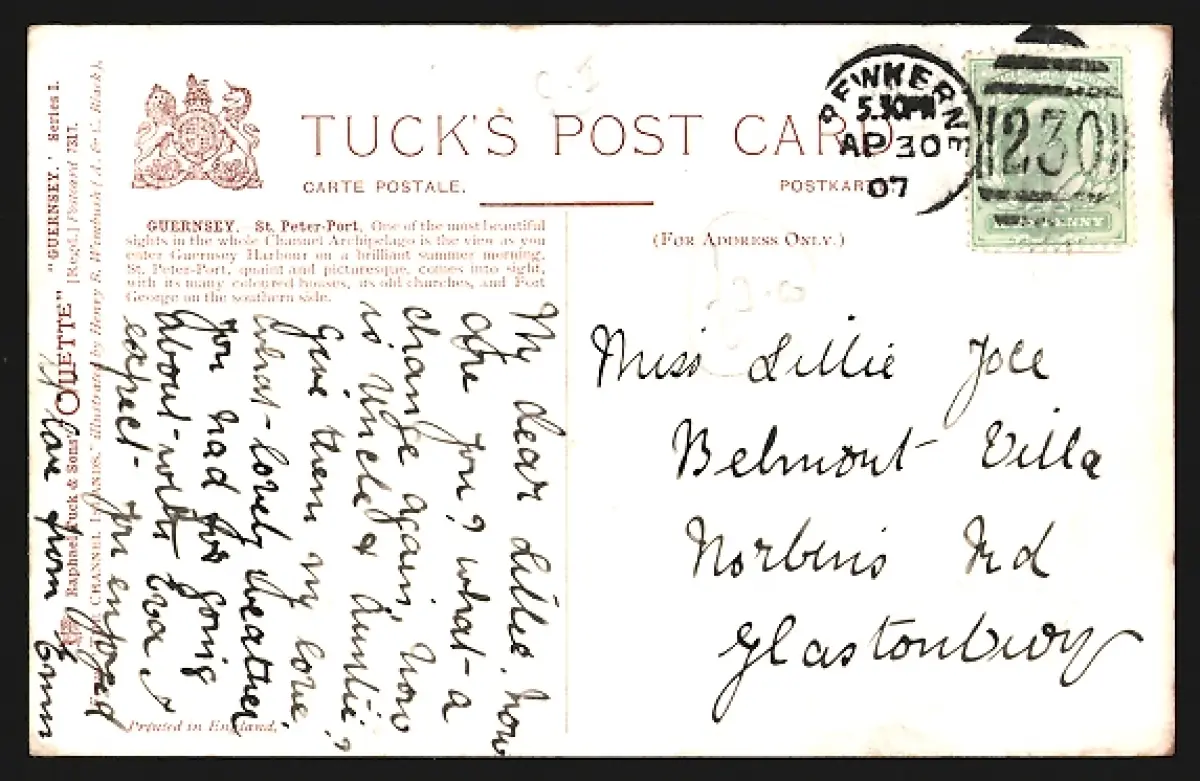 TUCK'S POST CARD
CARTE POSTALE.
POSTKART
(FOR ADDRESS ONLY.)
CREWKERNE
5.30PM
AP 30
07
230
PENNY
GUERNSEY. St. Peter-Port. One of the most beautiful
sights in the whole Channel Archipelago is the view as you
enter Guernsey Harbour on a brilliant summer morning.
St. Peter-Port, quaint and picturesque, comes into sight,
with its many coloured houses, its old churches, and Fort
George on the southern side.
My dear Lillie. How
are you? What a
change again, how
is Uncle & Auntie?
Give them my love.
What lovely weather
you had for going
about with Eva. I
expect you enjoyed
love from Emm
Miss Lillie
Belmont Villa
Norbins Rd
Glastonbury
Raphael Tuck & Sons' "OILETTE" [Regd.] Postcard 7317. "GUERNSEY." Series I.
CHANNEL ISLANDS," illustrated by Henry B. Wimbush (A. & C. Black).
Printed in England.